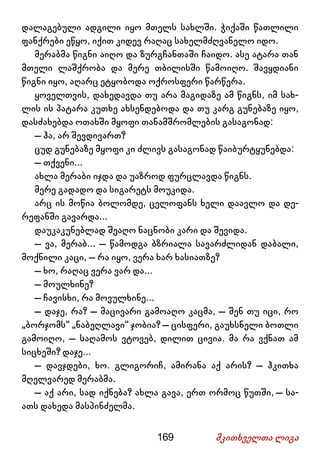 დალაგებული ადგილი იყო მთელს სახლში. ჭიქაში წათლილი
ფანქრები ეწყო, იქით კიდევ რაღაც სახელმძღვანელო იდო.
მერაბმა წიგნი აიღო და ზურგჩანთაში ჩაიდო. ასე ატარა თან
მთელი ლაშქრობა და მერე თბილისში წამოიღო. შავყდიანი
წიგნი იყო, აღარც ეტყობოდა ოქროსფერი წარწერა.
ყოველთვის, დახედავდა თუ არა მაგიდაზე ამ წიგნს, იმ სახ-
ლის ის პატარა კუთხე ახსენდებოდა და თუ კარგ გუნებაზე იყო,
დასძახებდა ოთახში მყოფი თანამშრომლების გასაგონად:
— ჰა, არ შევდივართ?
ცუდ გუნებაზე მყოფი კი ძლივს გასაგონად წაიბურტყუნებდა:
— თქვენი...
ახლა მერაბი იჯდა და უაზროდ ფურცლავდა წიგნს.
მერე გადადო და სიგარეტს მოუკიდა.
არც ის მოწია ბოლომდე, ცელოფანს ხელი დაავლო და დე-
რეფანში გავარდა...
დაუკაკუნებლად შეაღო ნაცნობი კარი და შევიდა.
— ვა, მერაბ... — წამოდგა ბზრიალა სავარძლიდან დაბალი,
მოქნილი კაცი, — რა იყო, ვერა ხარ ხასიათზე?
— ხო, რაღაც ვერა ვარ და...
— მოულხინე?
— ჩავისხი, რა მოვულხინე...
— დაჯე, რა? — მაცივარი გამოაღო კაცმა, — შენ თუ იცი, რო
„ბორჯომს“ „ნაბეღლავი“ ჯობია? — ცისფერი, გაუხსნელი ბოთლი
გამოიღო, — საღამოს ვტოვებ, დილით ცივია. მა რა ვქნათ ამ
სიცხეში? დაჯე...
— დავჯდები, ხო. გლიგორიჩ, ამირანა აქ არის? — ჰკითხა
მღელვარედ მერაბმა.
— აქ არი, სად იქნება? ახლა გავა, ერთ ორმოც წუთში, — სა-
ათს დახედა მასპინძელმა.
169 მკითხველთა ლიგა